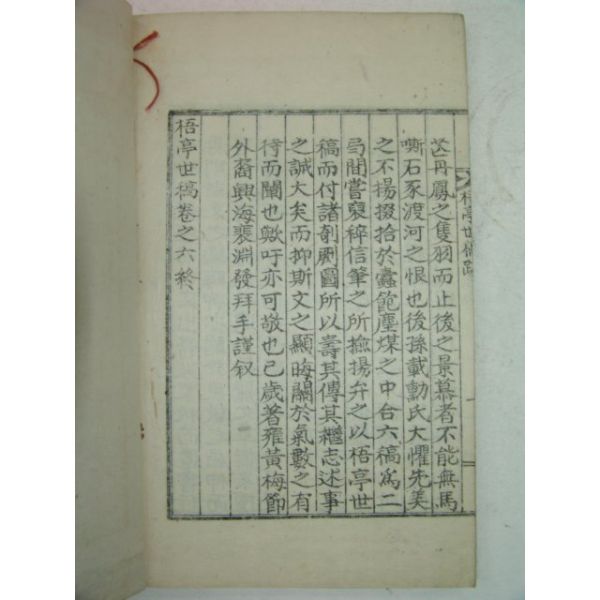 梧亭世稿跋
苙丹鳳之隻羽而止後之景慕者不能無馬
嘶石豕渡河之恨也後孫載勳氏大懼先美
之不揚掇拾於蠹篋塵煤之中合六稿爲二
局間嘗裒稡信筆之所撫揚弁之以梧亭世
稿而付諸剞劂圖所以壽其傳其繼志述事
之誠大矣而抑斯文之顯晦關於氣數之有
待而闡也歟吁亦可敬也已歲著雍黃梅節
外裔興海裵淵發拜手謹叙
梧亭世稿卷之六終